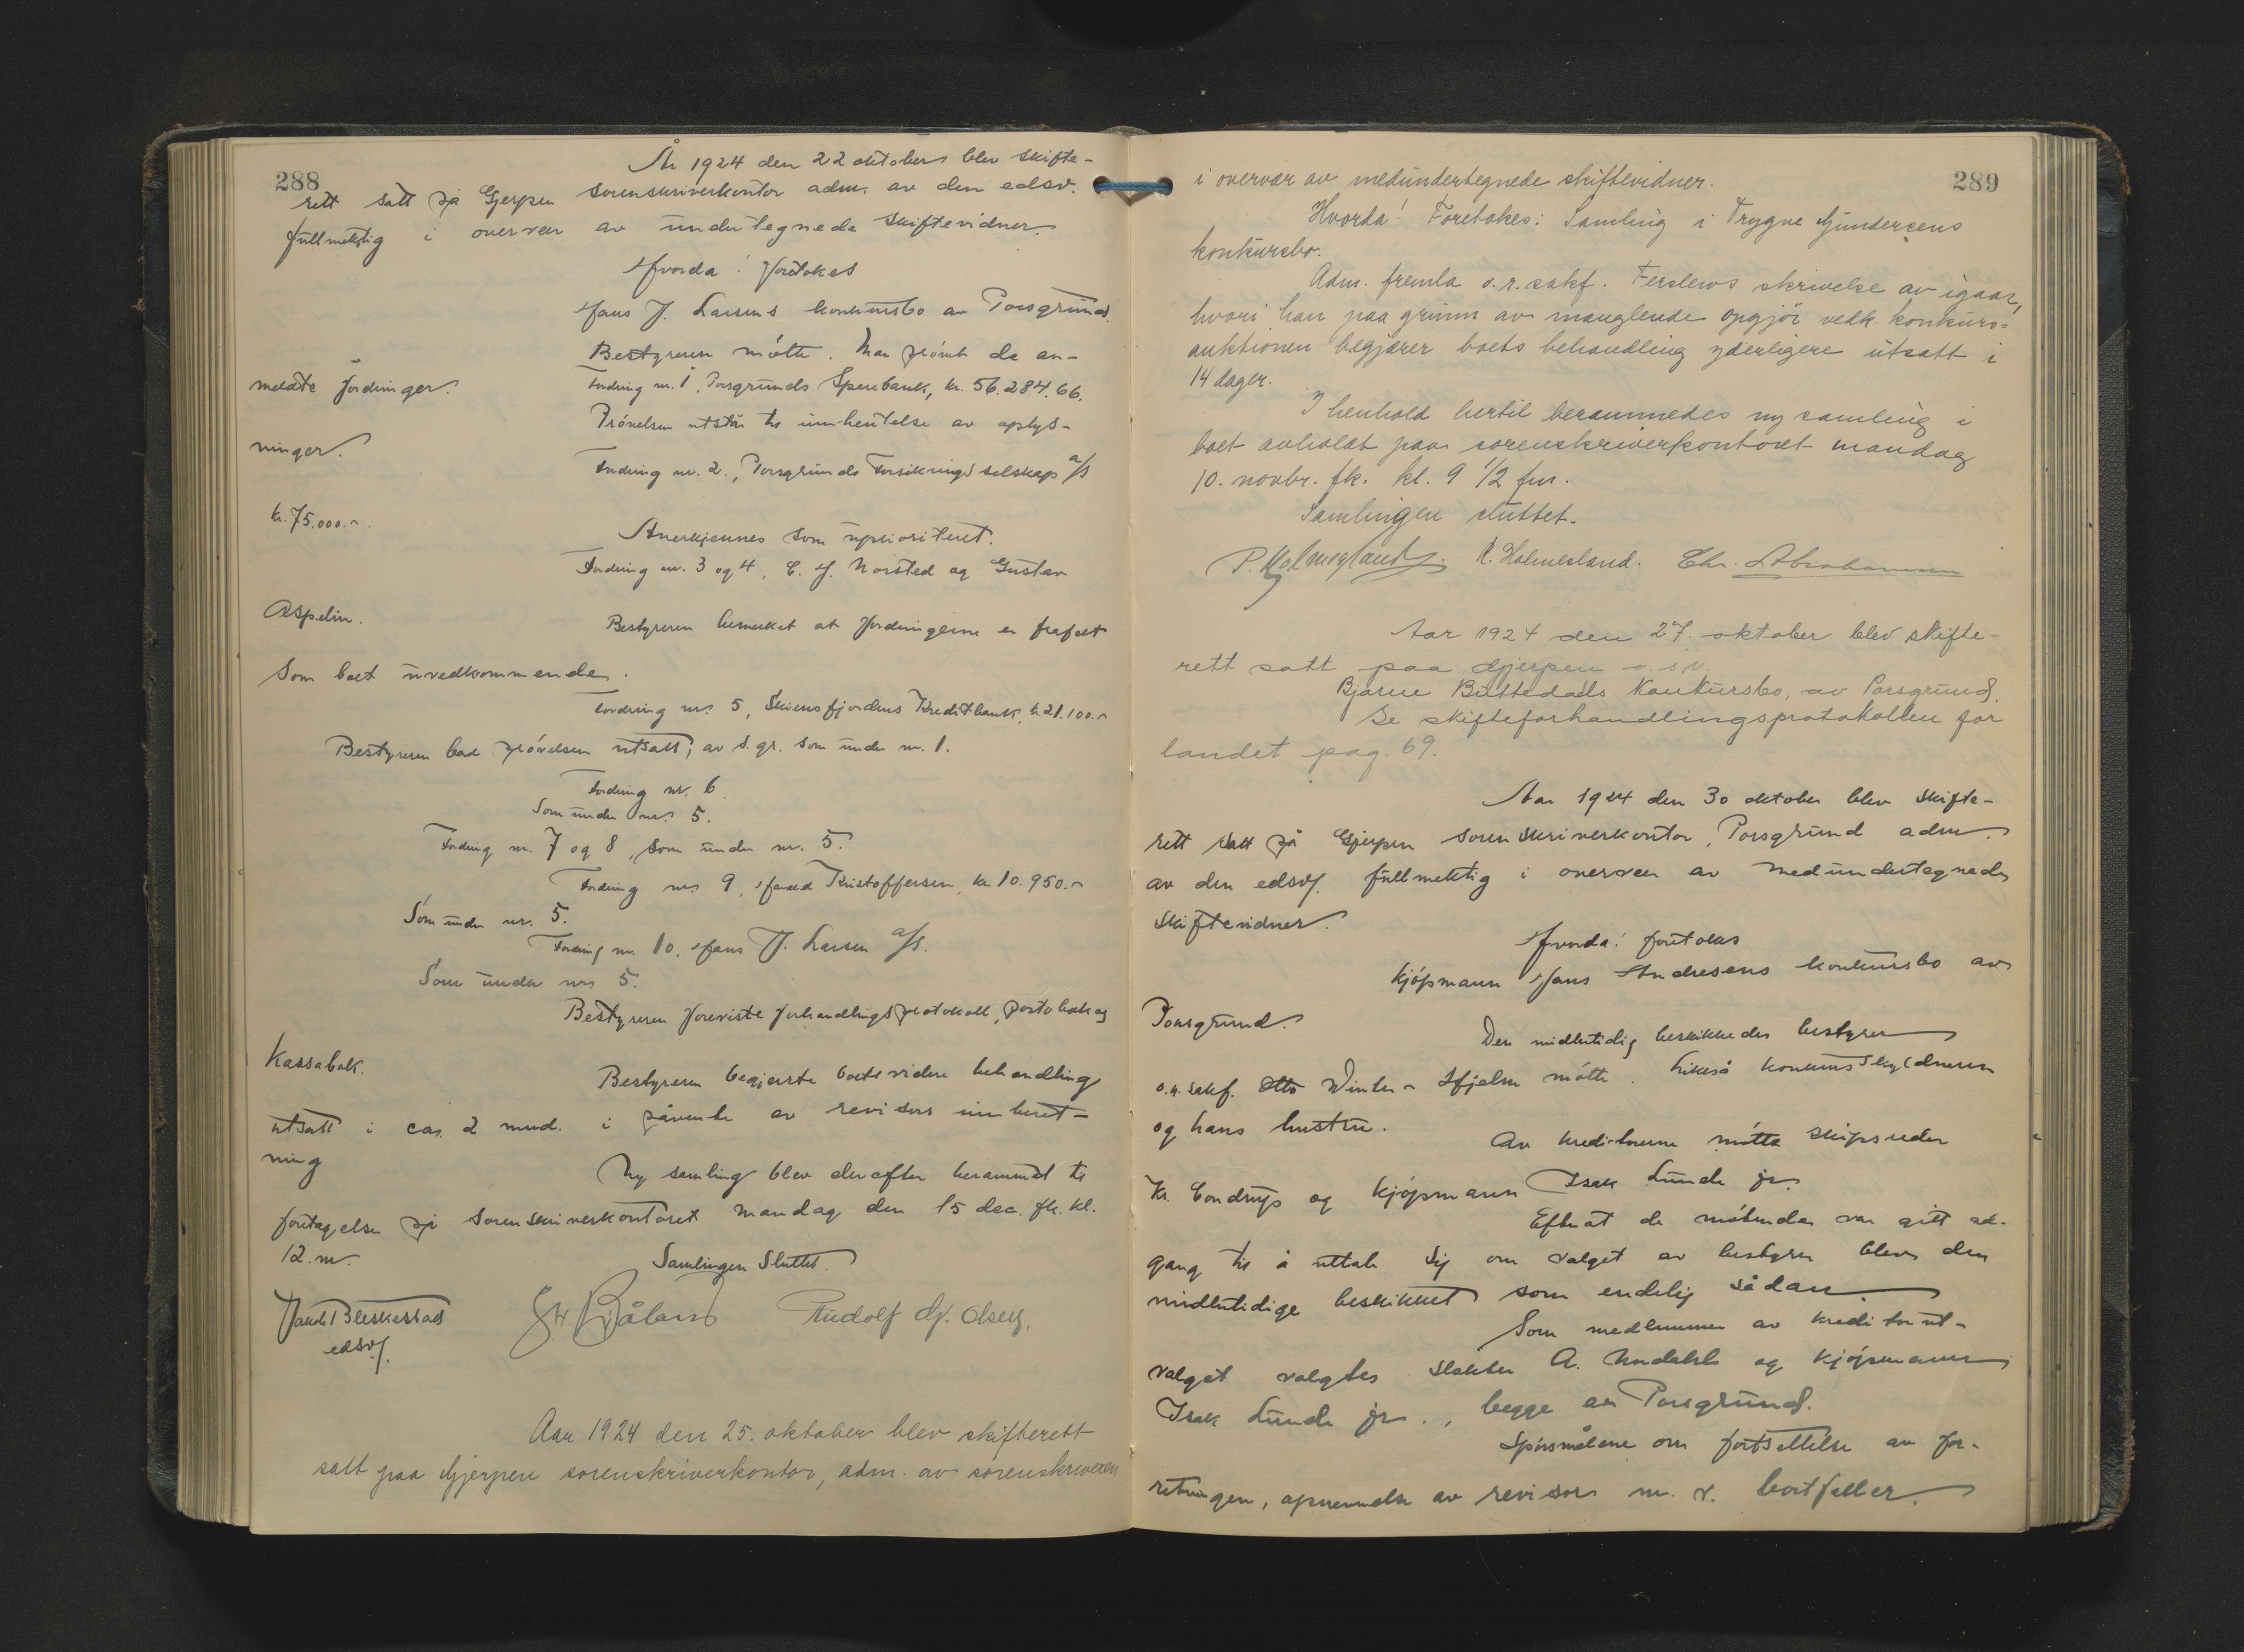 288
År 1924 den 22 oktober blev skifte-
rett satt på Gjerpen sorenskriverkontor adm. av den edsv.
fullmektig i overvær av undertegnede skiftevidner.
Hvorda! Foretokes
Hans J. Larsens konkursbo av Porsgrund.
Bestyreren møtte. Man prøvet de an-
meldte fordringer.
Fordring nr. 1, Porsgrunds Sparebank, kr. 56.284.66.
Prøvelsen utstår til innhentelse av oplys-
ninger.
Fordring nr. 2., Porsgrunds Forsikringsselskap a/s
kr. 75.000.-
Anerkjennes som uprioritert.
Fordring nr. 3 og 4, C. J. Norsted og Gustav
Aspelin.
Bestyreren bemerket at fordringerne er frafalt
som boet uvedkommende.
Fordring nr. 5, Skiensfjordens Kreditbank, kr. 21.100.-
Bestyreren bad prøvelsen utsatt, av s. gr. som under nr. 1.
Fordring nr. 6.
Som under nr. 5.
Fordring nr. 7 og 8, som under nr. 5.
Fordring nr. 9, Harald Kristoffersen, kr. 10.950.-
Som under nr. 5.
Fordring nr. 10. Hans J. Larsen a/s.
Som under nr. 5.
Bestyreren foreviste forhandlingsprotokoll, portobok og
Kassabok.
Bestyreren begjærte boets videre behandling
utsatt i ca. 2 mnd. i påvente av revisors innberet-
ning
Ny samling blev derefter berammet til
foretagelse på sorenskriverkontoret mandag den 15 dec. fk. kl.
12. m.
Samlingen sluttet.
edsvf.
Rudolf Gj. Olsen.
Aar 1924 den 25. oktober blev skifterett
satt paa Gjerpen sorenskriverkontor, adm. av sorenskriveren
289
i overvær av medundertegnede skiftevidner.
Hvorda! Foretokes: Samling i Trygve Gundersens
konkursbo.
Adm. fremla o.r.sakf. Ferslews skrivelse av igaar,
hvori han paa grunn av manglende opgjør vedk. konkurs-
auktionen begjærer boets behandling yderligere utsatt i
14 dager.
I henhold hertil berammedes ny samling i
boet avholdt paa sorenskriverkontoret mandag
10. novbr. fk. kl. 9 1/2 fm.
Samlingen sluttet.
P. Holmesland. R. Holmesland. Chr. Abrahamsen
Aar 1924 den 27. oktober blev skifte-
rett satt paa Gjerpen o.s.v.
Bjarne Buttedals Konkursbo, av Porsgrund.
Se skifteforhandlingsprotokollen for
landet pag. 69.
Aar 1924 den 30 oktober blev skifte-
rett satt på Gjerpen sorenskriverkontor, Porsgrund adm.
av den edsvf. fullmektig i overvær av medundertegnede
skiftevidner.
Hvorda! foretokes
Kjøpmann Hans Andresens konkursbo av
Porsgrund.
Den midlertidig beskikkede bestyrer
o.r.sakf. Otto Winter-Hjelm møtte. Likeså konkursskyldneren
og hans hustru.
Av kreditorerne møtte skipsreder
Kr. Condrup og kjøpmann Isak Lunde jr.
Efterat de møtende var gitt ad-
gang til å uttale sig om valget av bestyrer blev den
midlertidige beskikket som endelig sådan.
Som medlemmer av kreditorut-
valget valgtes slakter A. Undahl og kjøpmann
Isak Lunde jr., begge av Porsgrund.
Spørsmålene om fortsettelse av for-
retningen, opnevnelse av revisor m. v. bortfaller.